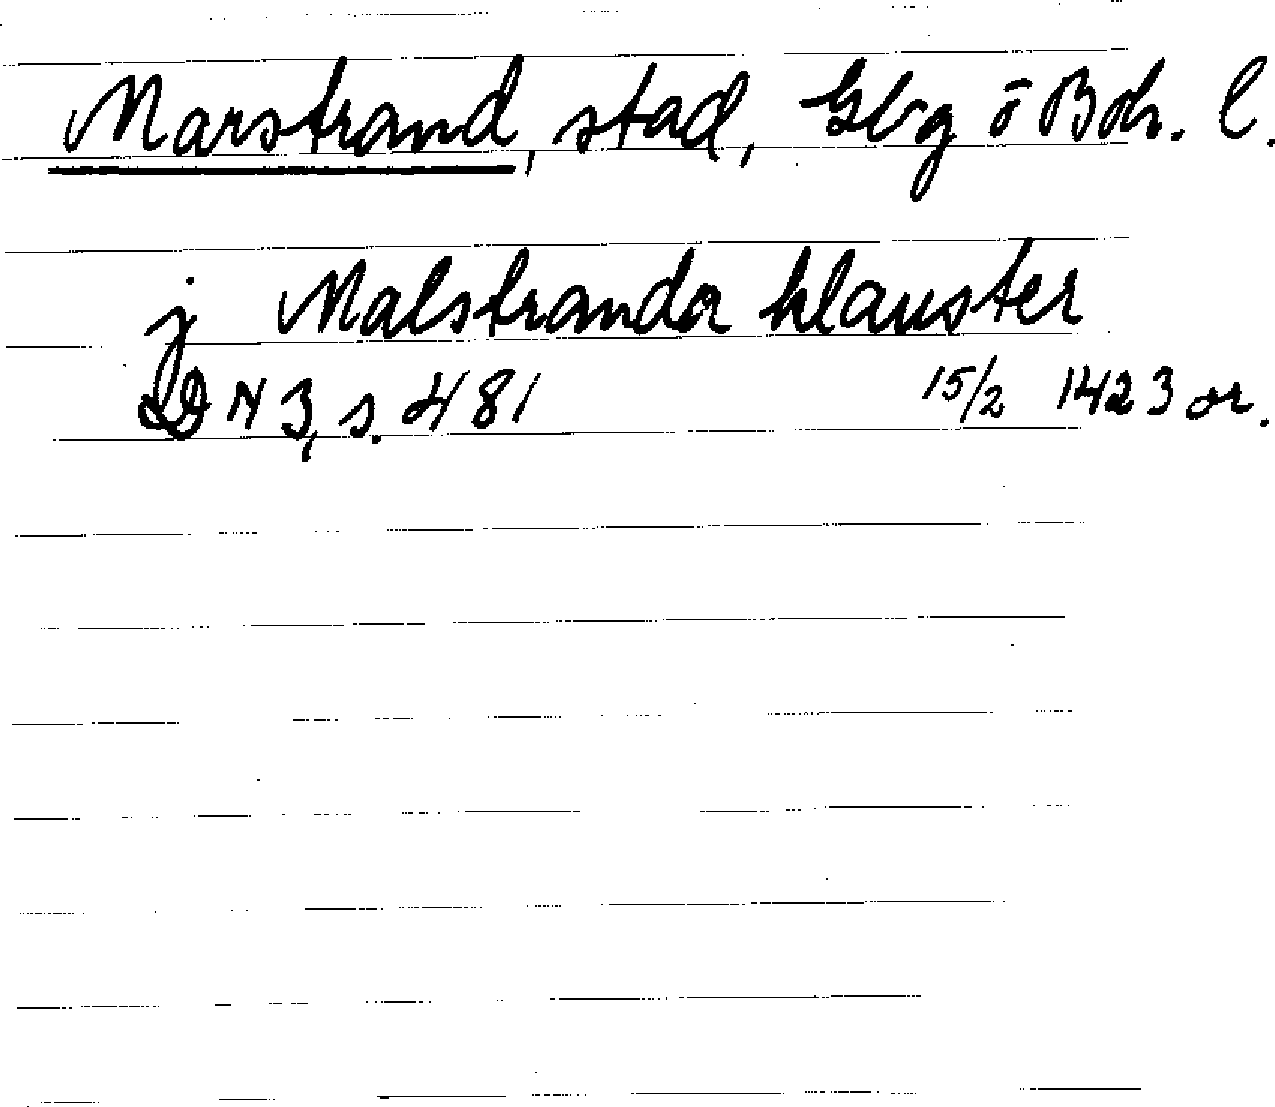 Marstrand, stad, Gbg o Boh. l.
j Malstranda klauster
DN 3, s. 481 15/2 1423 or.